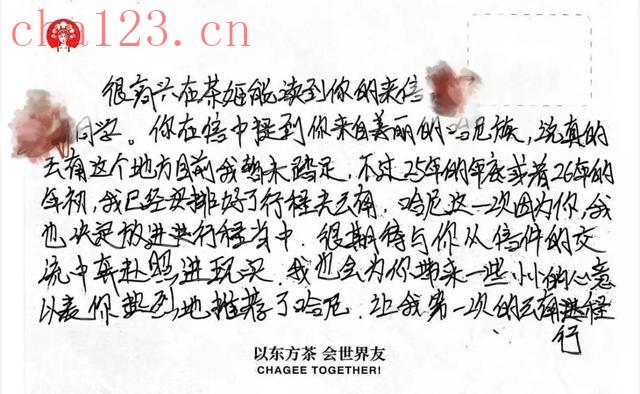 cha123.cn
很高兴在茶姬能读到你的来信
同学。你在信中提到你来自美丽的哈尼族,说真的
云南这个地方目前我暂未踏足,不过25年的年底或者26年的
年初,我已经安排好了行程去云南,哈尼这一次因为你,我
也决定放进行程当中.很期待与你从信件的交
流中奔赴照进现况.我也会为你带来一些小小的心意
以表你热烈地推荐了哈尼.让我第一次的云南进程
行
以东方茶 会世界友
CHAGEE TOGETHER!